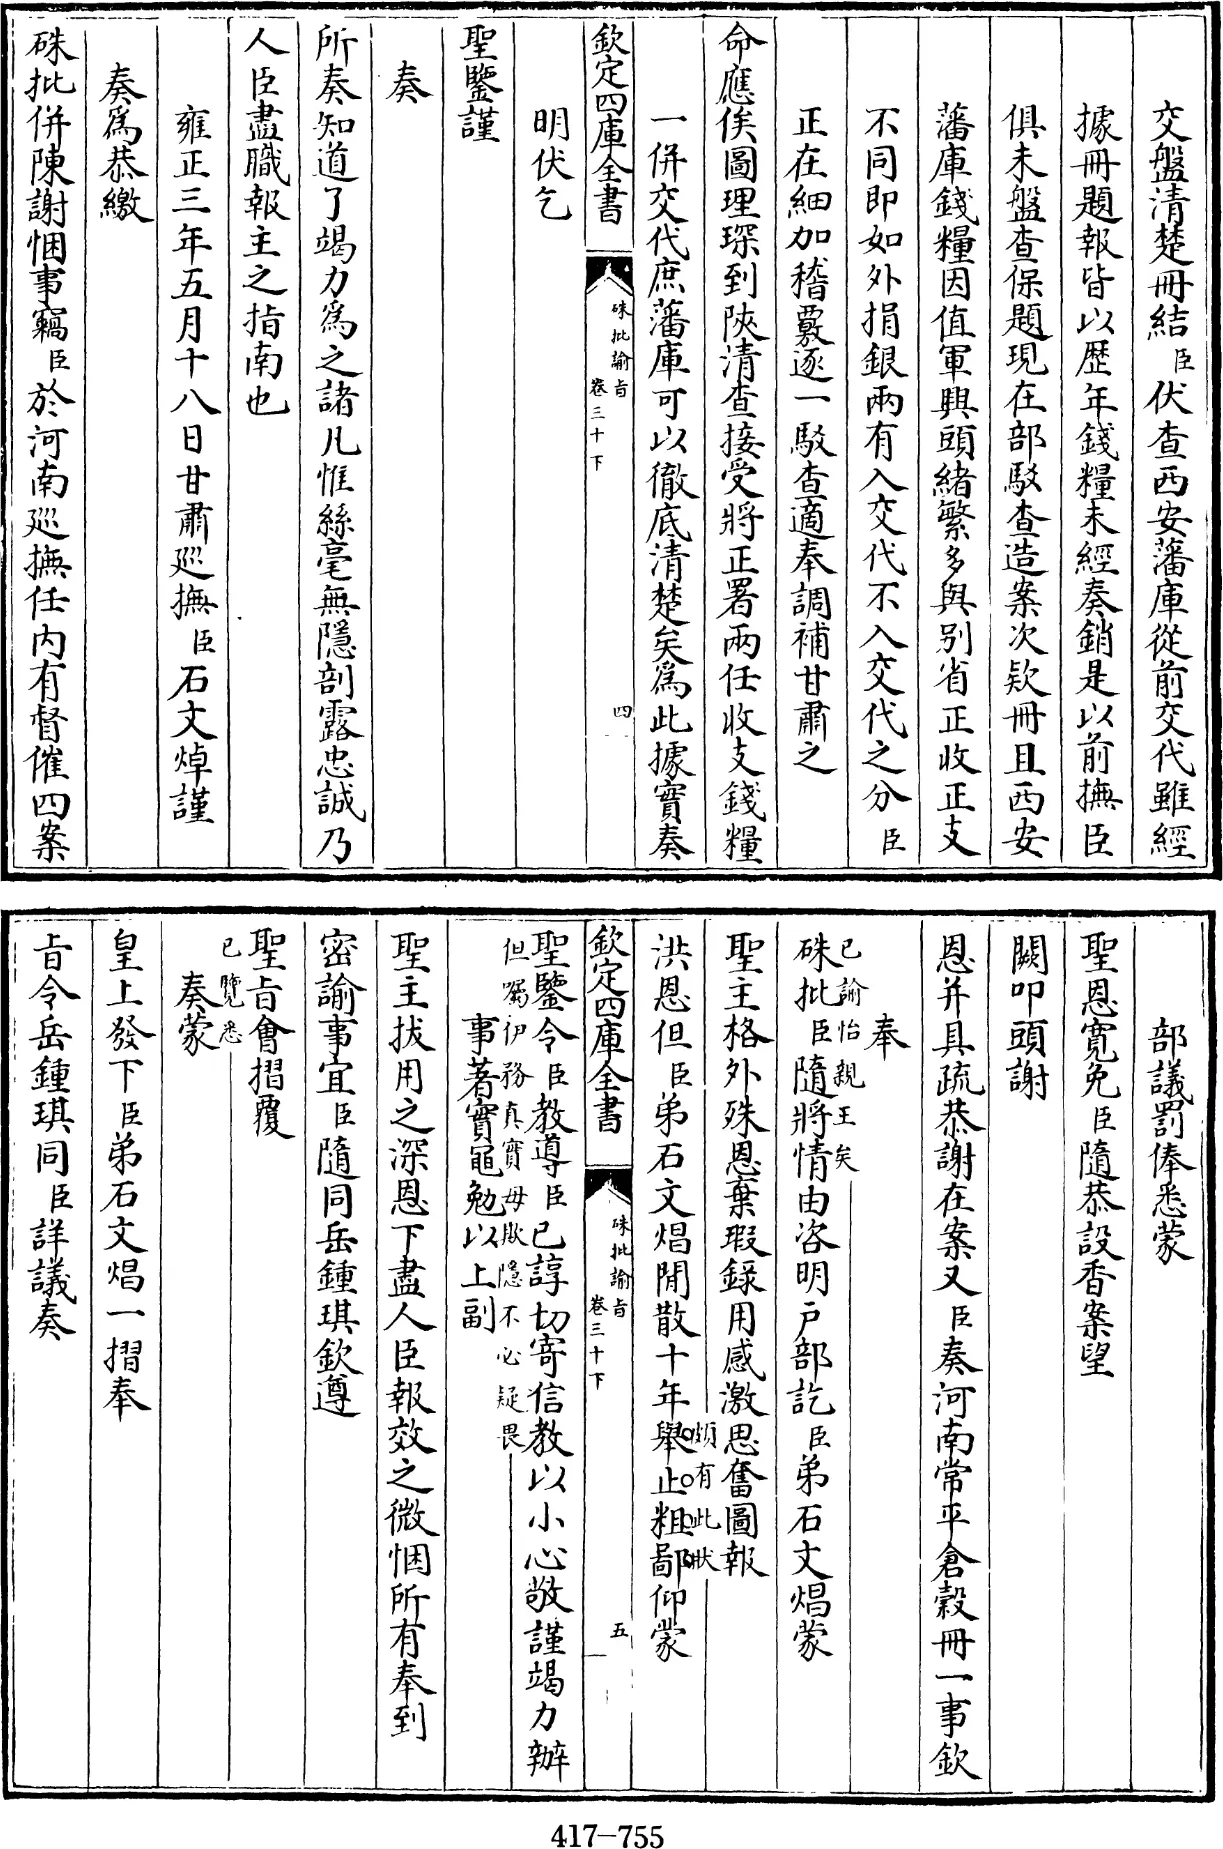 交盤清楚冊結臣伏查西安藩庫從前交代雖經
據冊題報皆以歴年錢糧未經奏銷是以前撫臣
俱未盤查保題現在部駁查造案次欵冊且西安
藩庫錢糧因值軍興頭緒繁多與别省正收正支
不同即如外捐銀兩有入交代不入交代之分臣
正在細加稽覈逐一駁查適奉調補甘肅之
命應俟圖理琛到陜清查接受將正署兩任收支錢糧
一併交代庶藩庫可以徹底清楚矣為此據實奏
欽定四庫全書
硃批諭旨
卷三十下
四
明伏乞
聖鑒謹
奏
所奏知道了竭力為之諸凡惟絲毫無隱剖露忠誠乃
人臣盡職報主之指南也
雍正三年五月十八日甘肅廵撫臣石文焯謹
奏為恭繳
硃批併陳謝悃事竊臣於河南廵撫任内有督催四案
部議罰俸悉蒙
聖恩寛免臣隨恭設香案望
闕叩頭謝
恩并具疏恭謝在案又臣奏河南常平倉穀冊一事欽
奉
已諭怡親王矣
硃批臣隨將情由咨明户部訖臣弟石文焻蒙
聖主格外殊恩棄瑕錄用感激思奮圖報
頗有此狀
洪恩但臣弟石文焻閒散十年舉止粗鄙仰蒙
欽定四庫全書
硃批諭旨
卷三十下
五
聖鑒令臣教導臣已諄切寄信教以小心敬謹竭力辦
但囑伊務真實毋欺隱不必疑畏
事著實黽勉以上副
聖主拔用之深恩下盡人臣報效之微悃所有奉到
密諭事宜臣隨同岳鍾琪欽遵
聖旨會摺覆
已覽悉
奏蒙
皇上發下臣弟石文焻一摺奉
旨令岳鍾琪同臣詳議奏
417-755